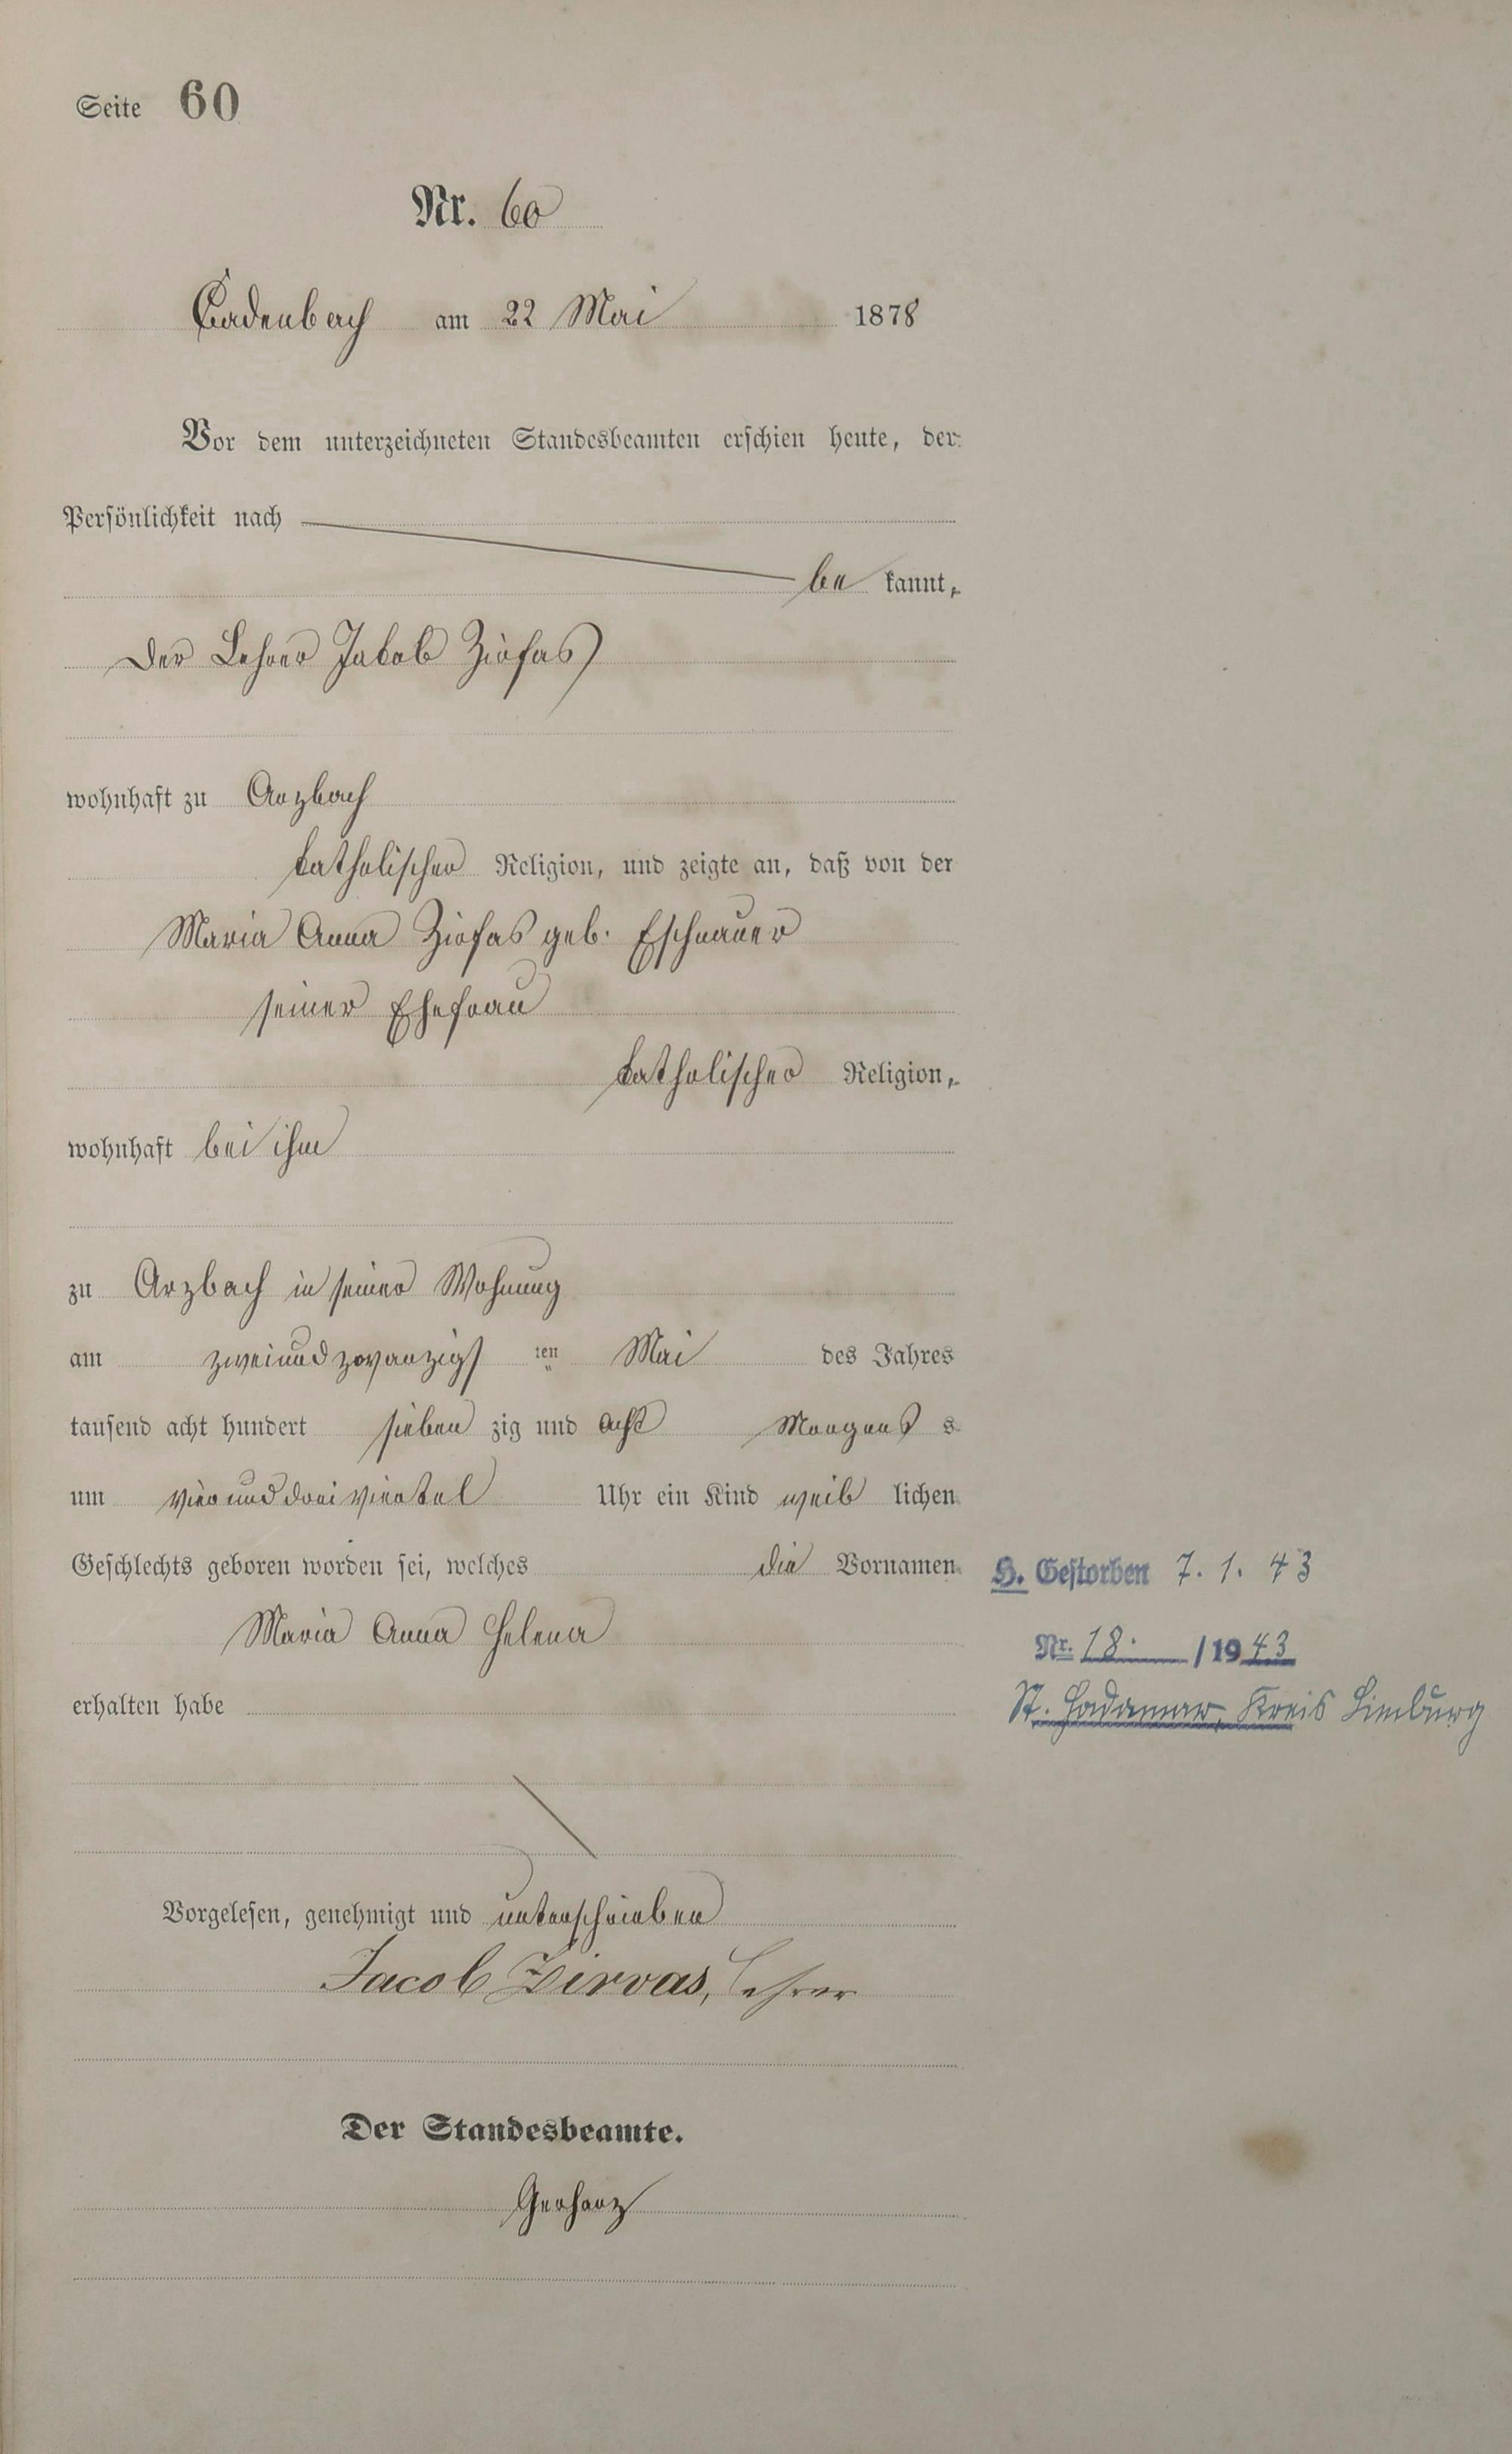 Seite 60
Nr. 60
Cadenbach am 22 Mai 1878
Vor dem unterzeichneten Standesbeamten erschien heute, der
Persönlichkeit nach
be kannt,
Der Lehrer Jakob Zirfas
wohnhaft zu Arzbach
katholischer Religion, und zeigte an, daß von der
Maria Anna Zirfas geb. Eschnauer
seiner Ehefrau
katholischer Religion,
wohnhaft bei ihm
zu Arzbach in seiner Wohnung
am zweiundzwanzigst ten Mai des Jahres
tausend acht hundert sieben zig und acht Morgens s
um vier und drei viertel Uhr ein Kind weib lichen
Geschlechts geboren worden sei, welches die Vornamen
H. Gestorben 7. 1. 43
Maria Anna Helena
Nr. 18. /1943
erhalten habe
St. Hadamar, Kreis Limburg
Vorgelesen, genehmigt und unterschrieben
Jacob Zirvas, Lehrer
Der Standesbeamte.
Gerharz